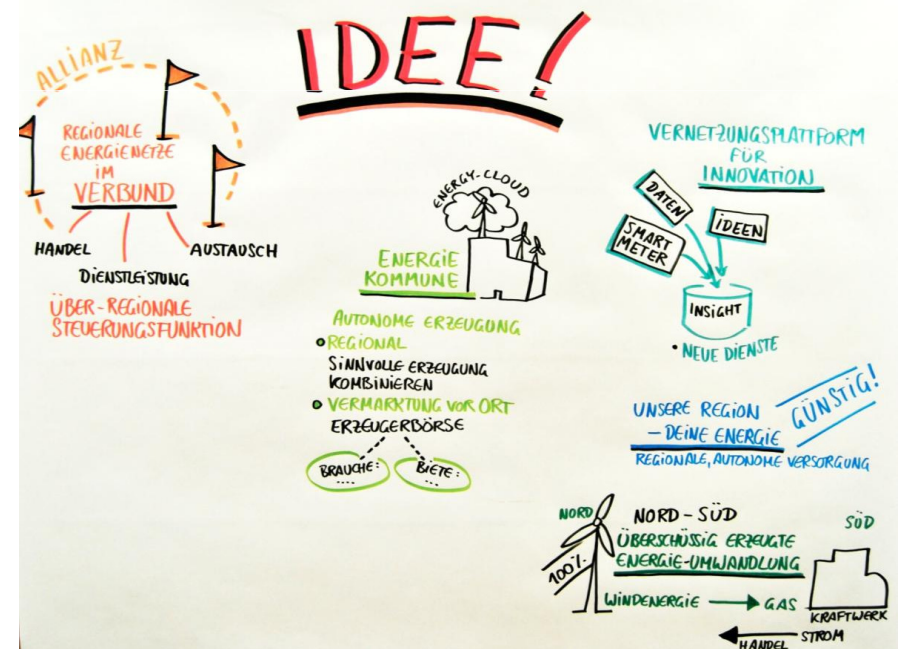 IDEE!
ALLIANZ
REGIONALE
ENERGIENETZE
IM
VERBUND
HANDEL
DIENSTLEISTUNG
AUSTAUSCH
ÜBER-REGIONALE
STEUERUNGSFUNKTION
ENERGY-CLOUD
ENERGIE
KOMMUNE
AUTONOME ERZEUGUNG
• REGIONAL
SINNVOLLE ERZEUGUNG
KOMBINIEREN
• VERMARKTUNG VOR ORT
ERZEUGERBÖRSE
BRAUCHE:
....
BIETE:
...
VERNETZUNGSPLATTFORM
FÜR
INNOVATION
DATEN
IDEEN
SMART
METER
INSIGHT
• NEUE DIENSTE
UNSERE REGION
— DEINE ENERGIE
GÜNSTIG!
REGIONALE, AUTONOME VERSORGUNG
NORD
NORD-SÜD
SÜD
ÜBERSCHÜSSIG ERZEUGTE
ENERGIE-UMWANDLUNG
100%
WINDENERGIE → GAS
KRAFTWERK
STROM
HANDEL